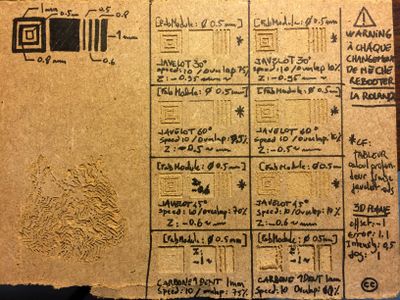 1mm 0.5mm 0.5
0.8
1mm
0.8mm 0.6
[FabModule: Ø 0.5mm]
JAVELOT 30°
speed: 10 / overlap 75%
[FabModule: Ø 0.5mm]
JAVELOT 30°
speed: 10 / overlap 10%
Z: -0.35 mm
[FabModule: Ø 0.5mm]
JAVELOT 60°
Z: -0.5 mm
[FabModule: Ø 0.5mm]
JAVELOT 60°
speed 10 / overlap 10%
Z: -0.5 mm
[FabModule: Ø 0.5mm]
0.6
JAVELOT 45°
speed: 10 / overlap: 75%
Z: -0.6
[FabModule: Ø 0.5mm]
JAVELOT 45°
speed: 10 / overlap: 10%
Z: -0.6
[FabModule: Ø 0.5mm]
CARBONE 1DENT 1mm
speed: 10 / overlap: 75%
[FabModule: Ø 0.5mm]
CARBONE 1DENT 1mm
speed: 10 / overlap
WARNING
À CHAQUE
CHANGEMENT
DE MÈCHE
REBOOTER
LA ROLAND
*CF:
TABLEUR
javelot.ods
3D PLANE
offset: -1
error: 1.1
Intensity: 0.5
cc